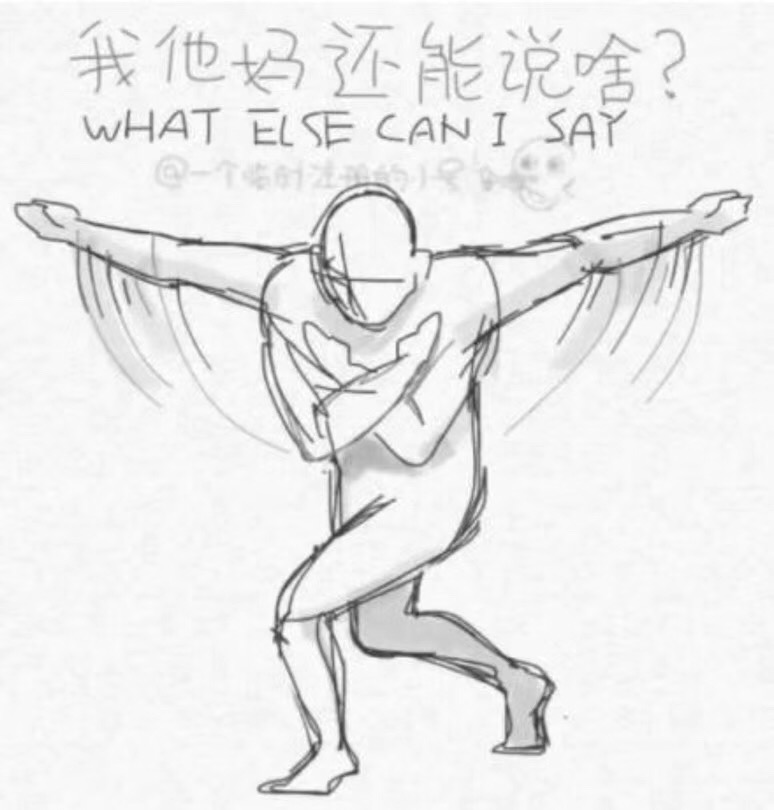 我他妈还能说啥？
WHAT ELSE CAN I SAY
@一个临时注册的小号